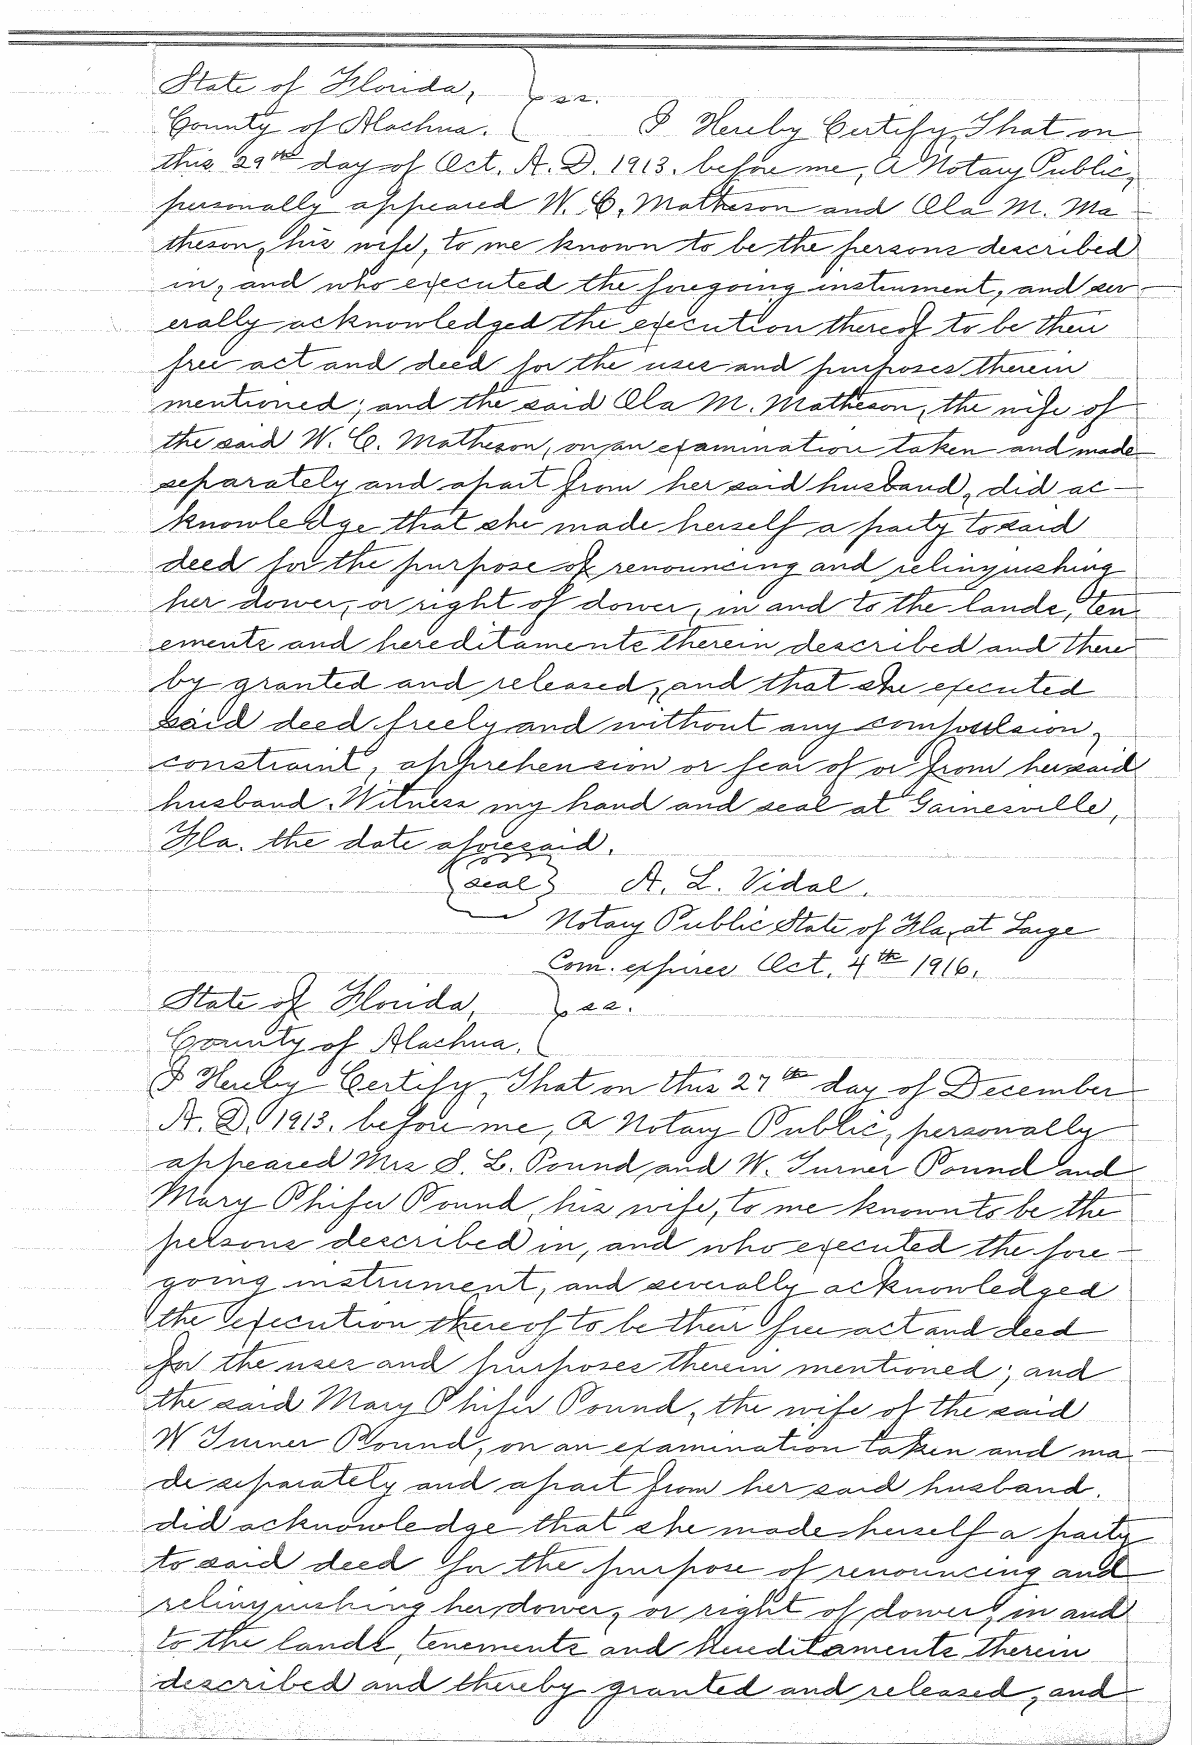 State of Florida, } ss.
County of Alachua. I Hereby Certify, That on
this 29th day of Oct. A. D. 1913. before me, A Notary Public,
personally appeared W. C. Matheson and Ola M. Ma
theson, his wife, to me known to be the persons described
in, and who executed the foregoing instrument, and sev-
erally acknowledged the execution thereof to be their
free act and deed for the uses and purposes therein
mentioned; and the said Ola M. Matheson, the wife of
the said W. C. Matheson, on an examination taken and made
separately and apart from her said husband, did ac-
knowledge that she made herself a party to said
deed for the purpose of renouncing and relinquishing
her dower, or right of dower, in and to the lands, ten
ements and hereditaments therein described and there
by granted and released, and that she executed
said deed freely and without any compulsion,
constraint, apprehension or fear of or from her said
husband. Witness my hand and seal at Gainesville,
Fla. the date aforesaid.
{seal} A. L. Vidal.
Notary Public State of Fla. at Large
Com. expires Oct. 4th 1916.
State of Florida, } ss.
County of Alachua.
I Hereby Certify, That on this 27th day of December
A. D. 1913. before me, A Notary Public, personally
appeared Mrs S. L. Pound and W. Turner Pound and
Mary Phifer Pound, his wife, to me known to be the
persons described in, and who executed the fore-
going instrument, and severally acknowledged
the execution thereof to be their free act and deed
for the uses and purposes therein mentioned; and
the said Mary Phifer Pound, the wife of the said
W Turner Pound, on an examination taken and ma
de separately and apart from her said husband.
did acknowledge that she made herself a party
to said deed for the purpose of renouncing and
relinquishing her dower, or right of dower, in and
to the lands, tenements and hereditaments therein
described and thereby granted and released, and